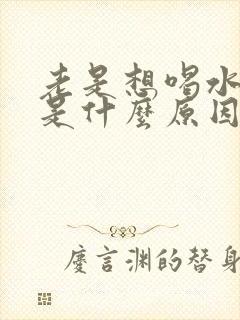 老是想喝水
是什麼原因
慶言渊的替身